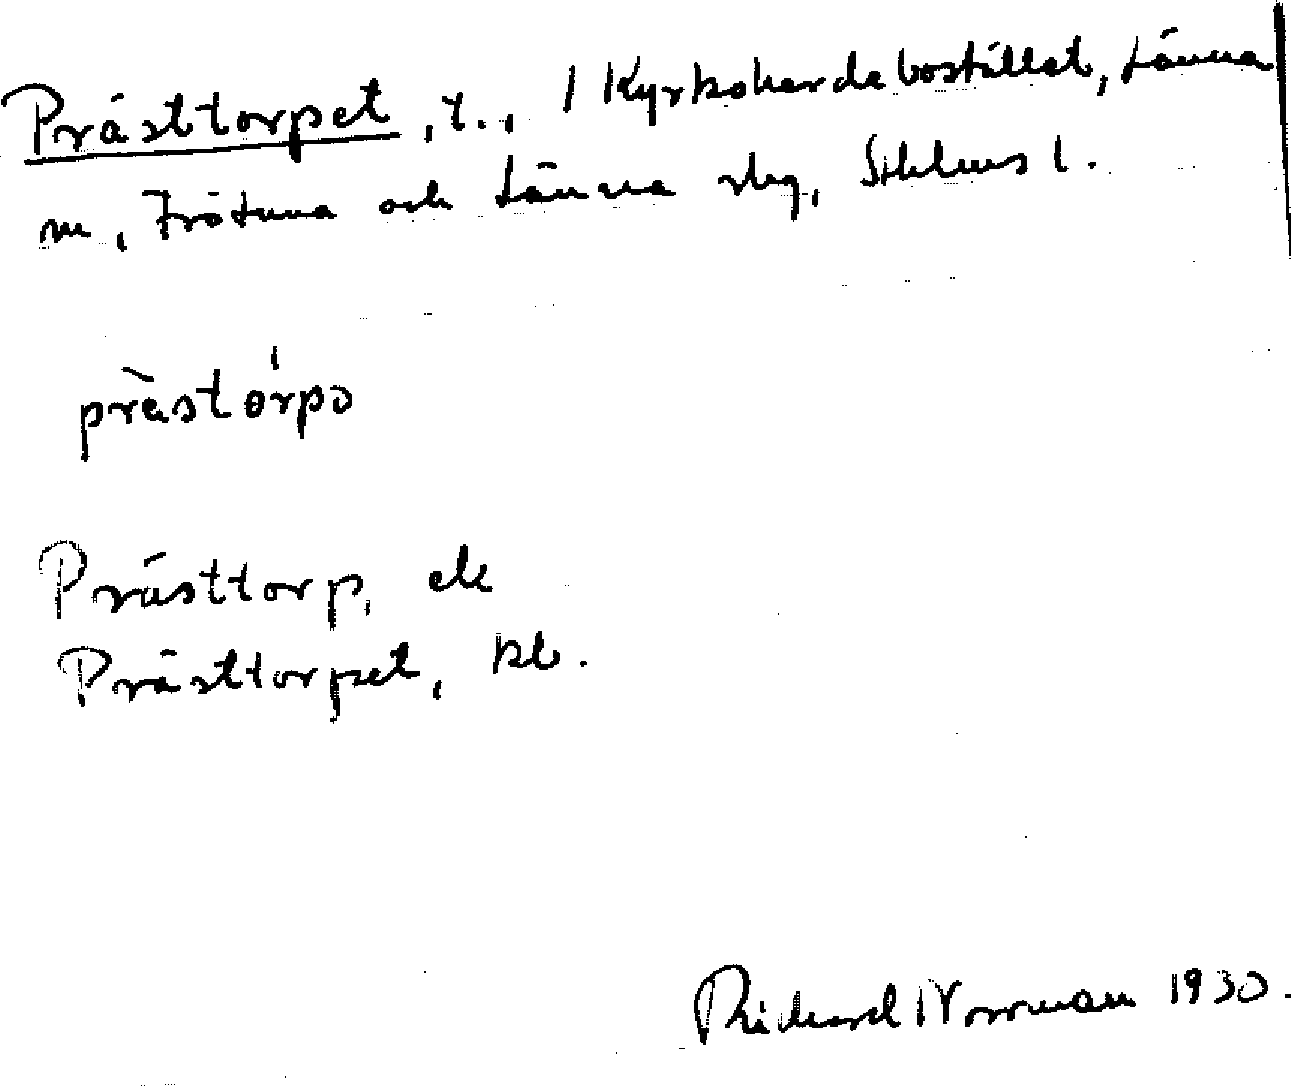 Prästtorpet, t., / Kyrkoherdebostället, Länna
sn, Frötuna och Länna skg, Sthlms l.
prästórpə
Prästtorp, ek
Prästtorpet, kb.
Rickard Norrman 1930.